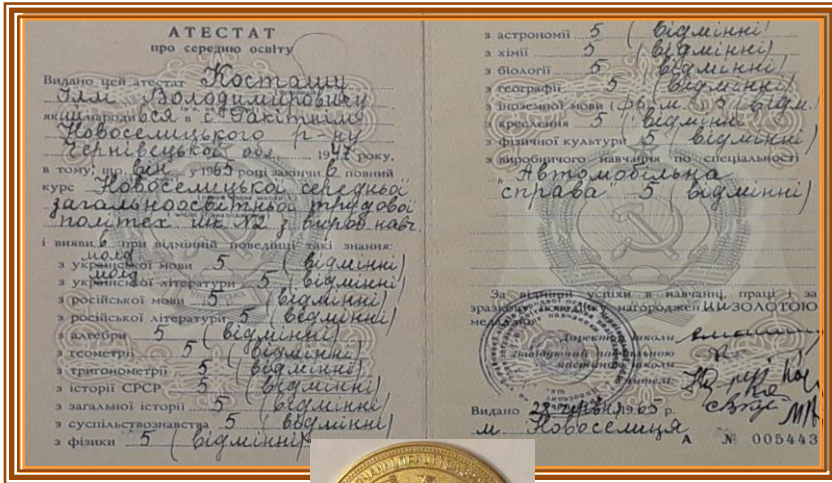 АТЕСТАТ
про середню освіту
Видано цей атестат Косташу
Іллі Володимировичу
який народився в с. Ракитному
Новоселицького р-ну
Чернівецької обл. 1947 року,
в тому, що він у 1965 році закінчив повний
курс Новоселицької середньої
загальноосвітньої трудової
політех. шк. №2 з вироб. навч.
і виявив при відмінній поведінці такі знання:
молд
з української мови 5 (відмінні)
молд
з української літератури 5 (відмінні)
з російської мови 5 (відмінні)
з російської літератури 5 (відмінні)
з алгебри 5 (відмінні)
з геометрії 5 (відмінні)
з тригонометрії 5 (відмінні)
з історії СРСР 5 (відмінні)
з загальної історії 5 (відмінні)
з суспільствознавства 5 (відмінні)
з фізики 5 (відмінні)
з астрономії 5 (відмінні)
з хімії 5 (відмінні)
з біології 5 (відмінні)
з географії 5 (відмінні)
з іноземної мови 5 (відм.)
креслення 5 (відмінні)
з фізичної культури 5 (відмінні)
з виробничого навчання по спеціальності
"Автомобільна
справа" 5 (відмінні)
За відмінні успіхи в навчанні, праці і за
нагороджений ЗОЛОТОЮ
Директор школи
Видано 28 червня 1965 р.
м. Новоселиця
А № 005443